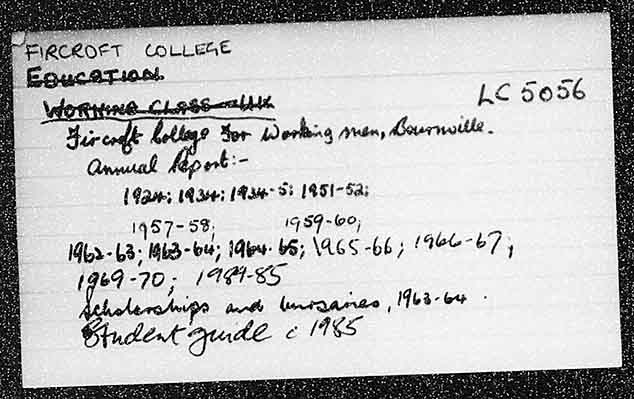 FIRCROFT COLLEGE
EDUCATION
WORKING CLASS - UK
LC 5056
Fircroft College for Working men, Bournville.
Annual Report:-
1924; 1934; 1934-5; 1951-52;
1957-58; 1959-60;
1962-63; 1963-64; 1964-65; 1965-66; 1966-67;
1969-70; 1984-85
Scholarships and bursaries, 1963-64.
Student guide c 1985